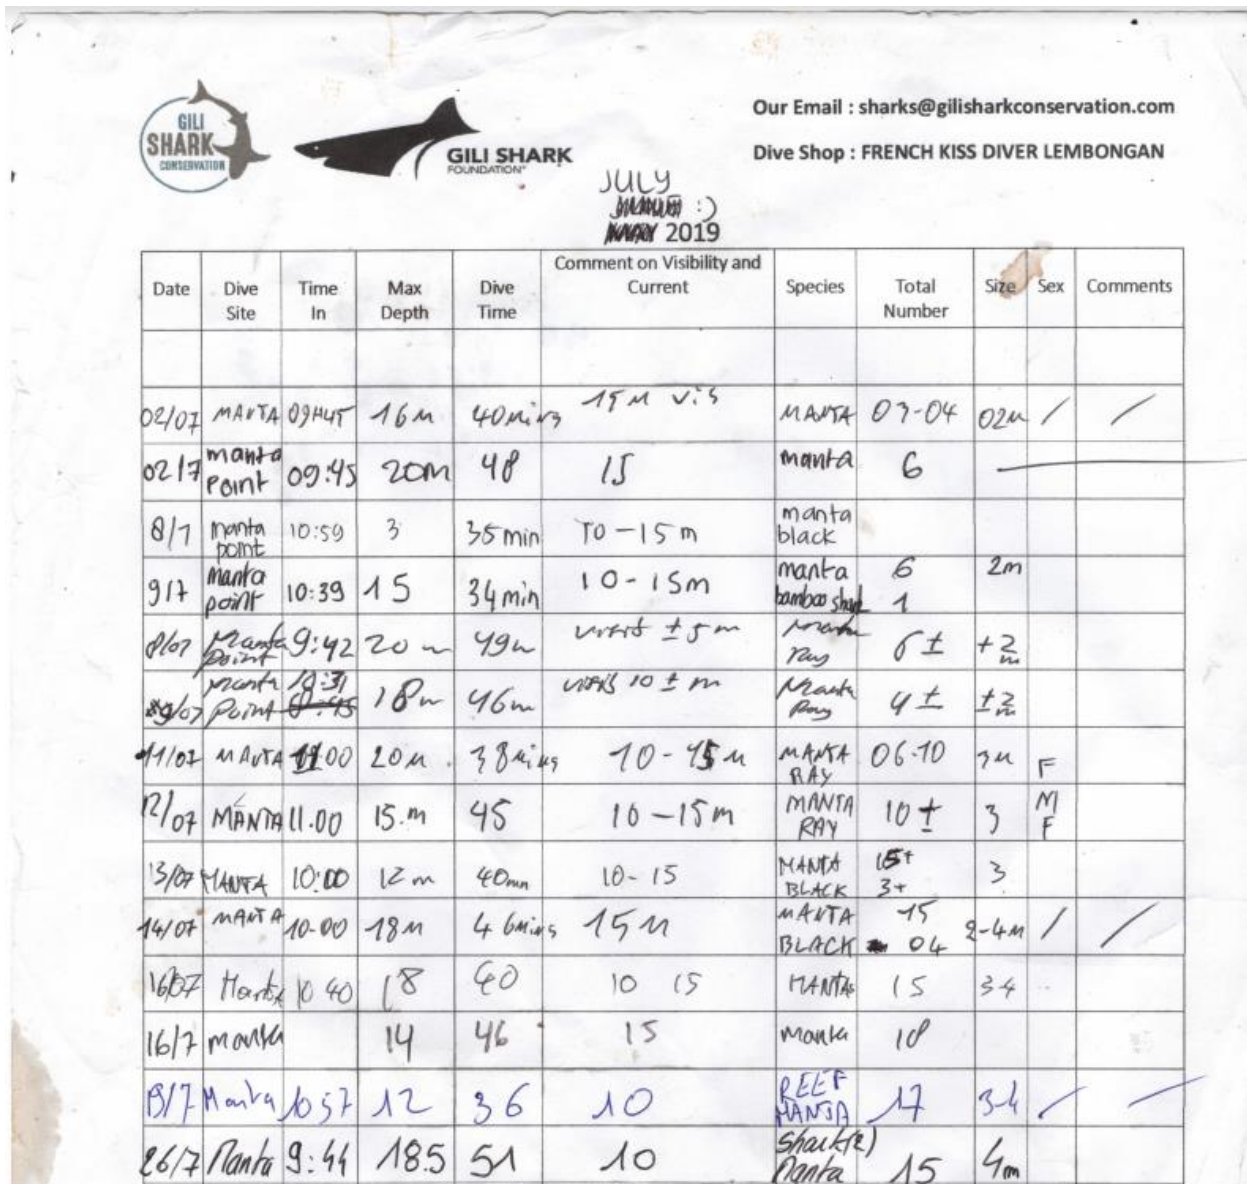 GILI
SHARK
CONSERVATION
GILI SHARK
FOUNDATION
Our Email : sharks@gilisharkconservation.com
Dive Shop : FRENCH KISS DIVER LEMBONGAN
JULY
:)
2019
Date Dive Site Time In Max Depth Dive Time Comment on Visibility and Current Species Total Number Size Sex Comments
02/07 MANTA 09H45 16M 40mins 15M vis MANTA 03-04 02M / /
02/7 manta point 09:45 20m 48 15 manta 6
8/7 manta point 10:59 3 35 min 10-15m manta black
9/7 manta point 10:39 15 34 min 10-15m manta 6 2m
bamboo shark 1
8/07 Manta Point 9:42 20m 49m ± 5m Manta Ray 6± +2m
9/07 Manta Point 10:31 18m 46m 10 ± m Manta Ray 4± ±2m
11/07 MANTA 11.00 20M 38mins 10-15M MANTA RAY 06-10 3M F
12/07 MANTA 11.00 15.m 45 10-15m MANTA RAY 10± 3 M F
13/07 MANTA 10:00 12m 40mn 10-15 MANTA 15+ 3
BLACK 3+
14/07 MANTA 10-00 18M 46mins 15M MANTA 15 2-4M / /
BLACK 04
16/07 Manta 10 40 18 40 10 15 MANTAs 15 34
16/7 manta 14 46 15 manta 18
19/7 Manta 10 57 12 36 10 REEF MANTA 17 3-4 / /
26/7 Manta 9:44 18.5 51 10 Shark(2)
Manta 15 4m